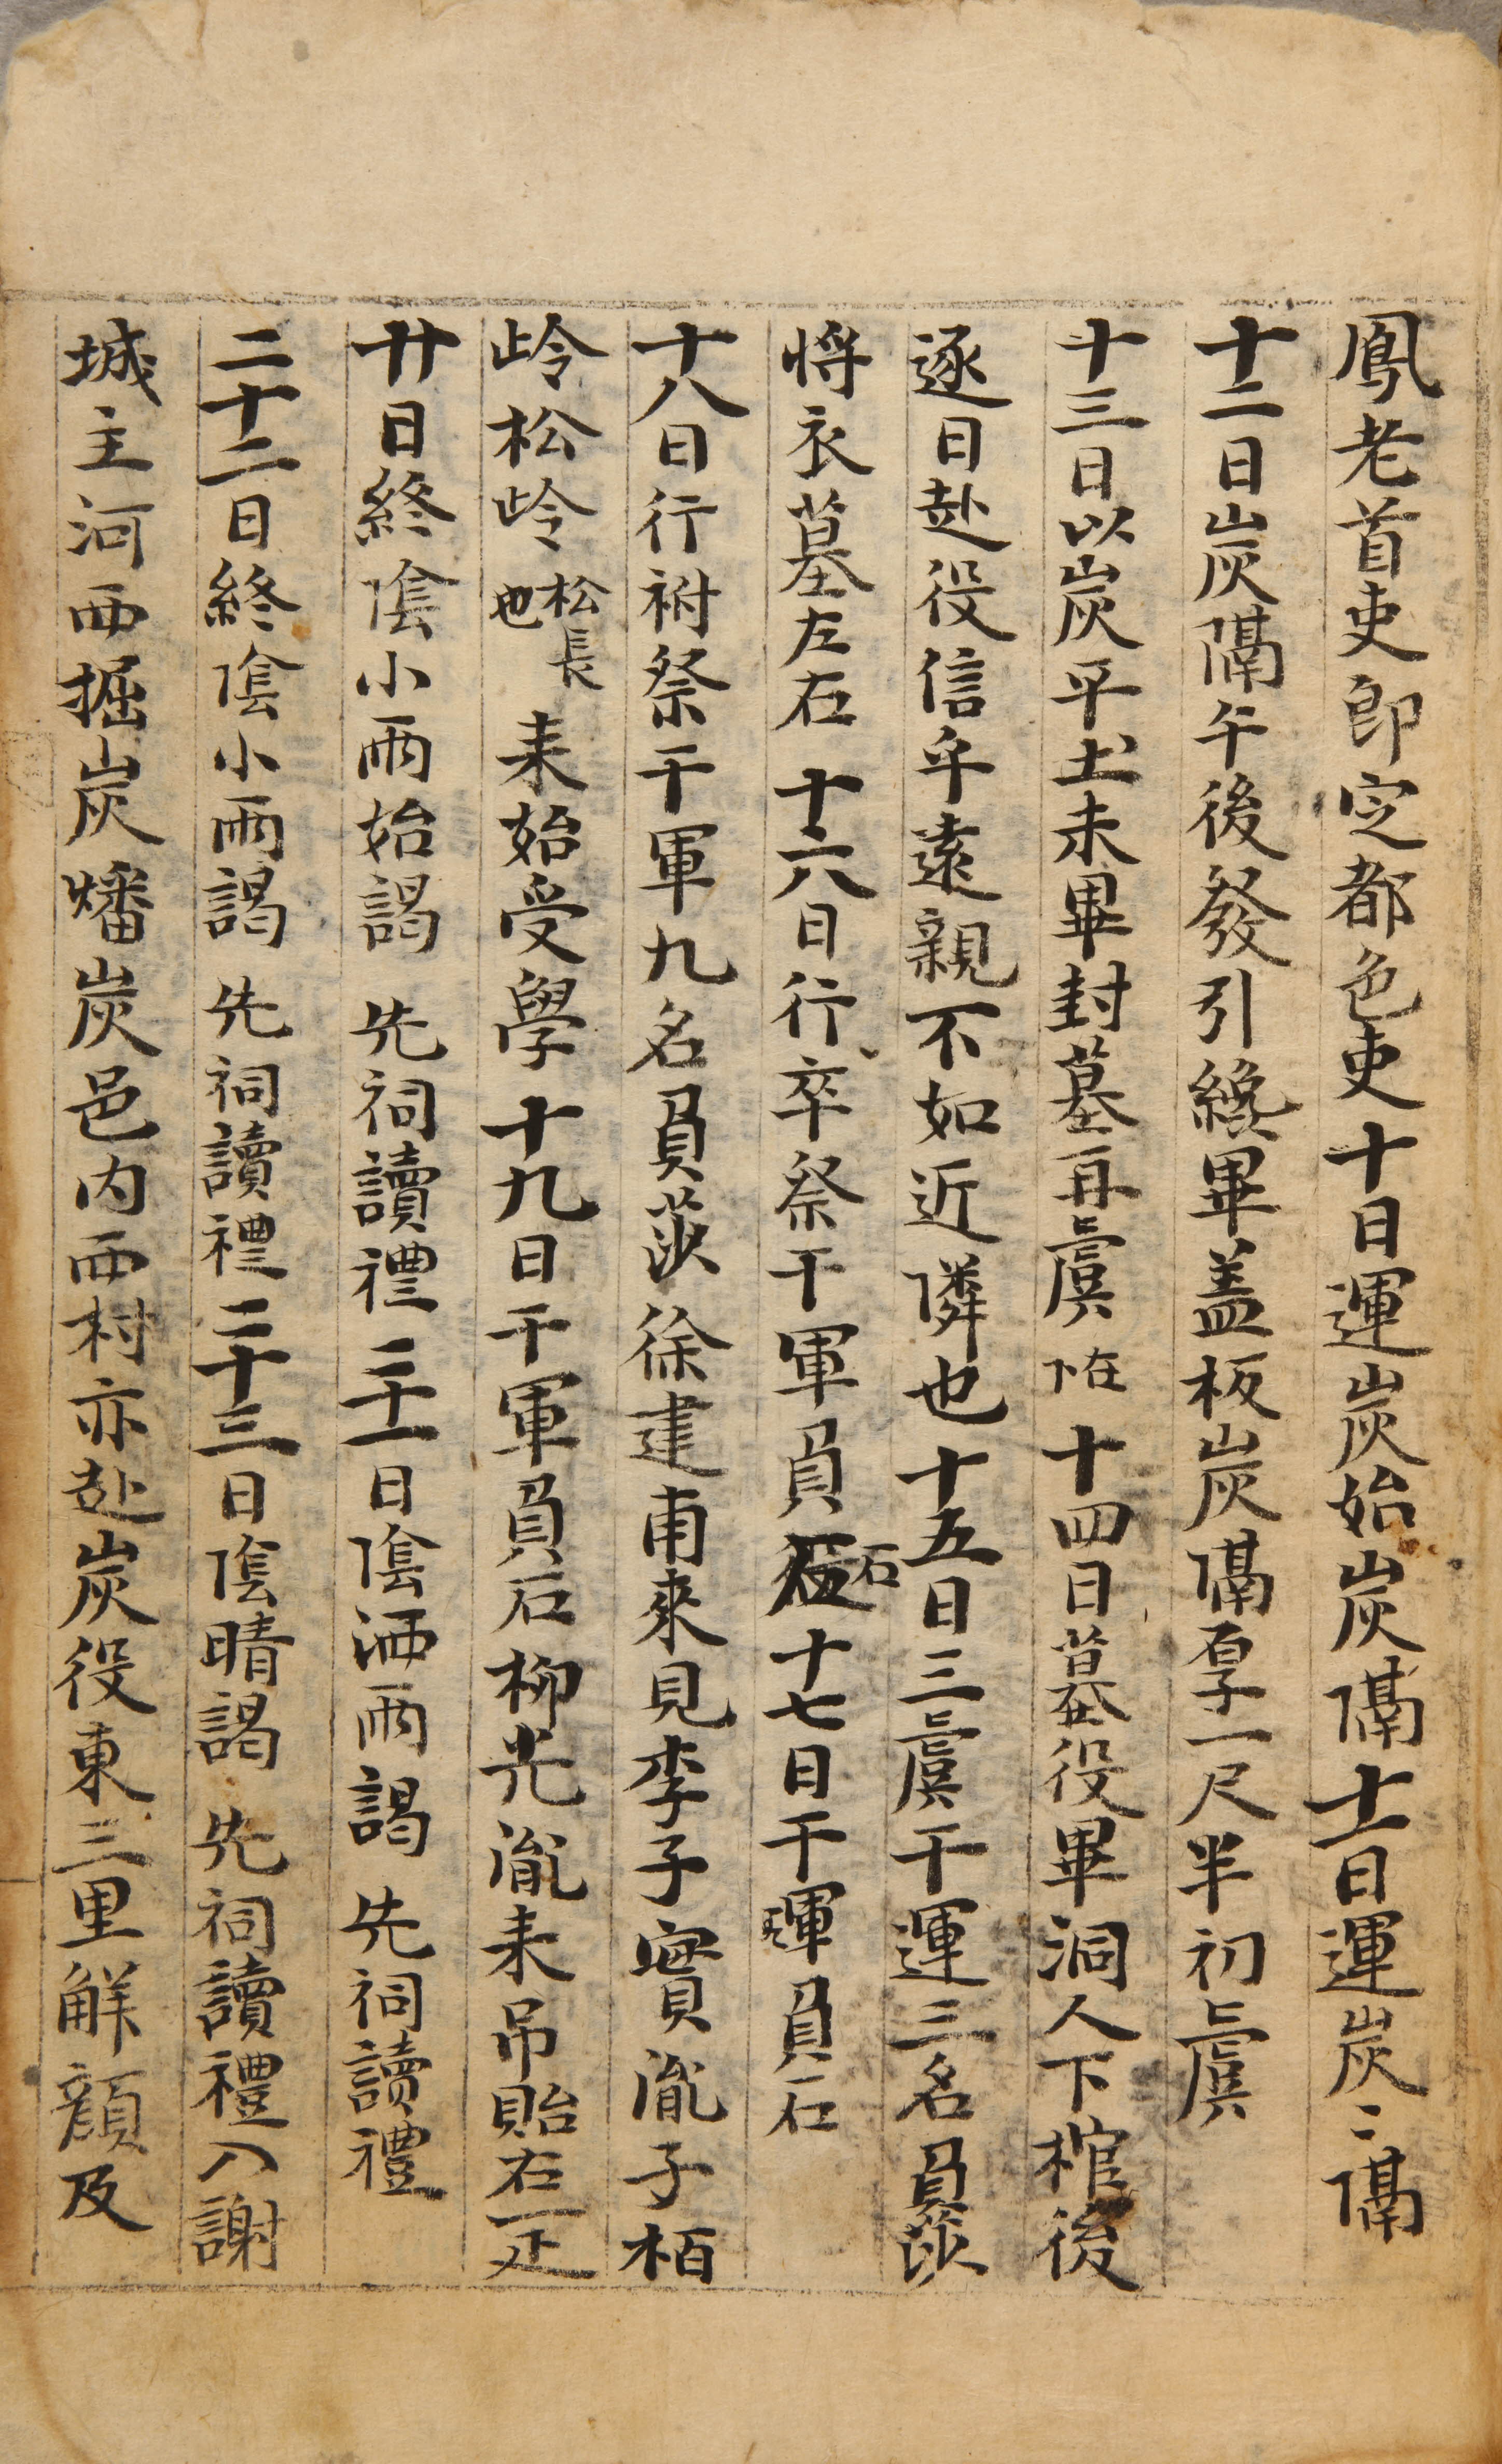 鳳老首吏郎定都色吏十日運炭始炭隔十一日運炭〻隔
十二日炭隔午後發引纔畢盖板炭隔厚一尺半初虞
十三日以炭平土未畢封墓再虞在下十四日墓役畢洞人下棺後
逐日赴役信乎遠親不如近隣也十五日三虞干運三名負莎
將衣墓左右十六日行卒祭干軍負石役十七日干軍負石
十八日行祔祭干軍九名負莎徐建甫來見李子實胤子栢
岭松岭松長也来始受學十九日干軍負石柳光胤来吊貽右疋
廿日終隂小雨始謁先祠讀禮二十一日隂洒雨謁先祠讀禮
二十二日終隂小雨謁先祠讀禮二十三日隂晴謁先祠讀禮入謝
城主河西掘炭燔炭邑内西村亦赴炭役東三里解顔及